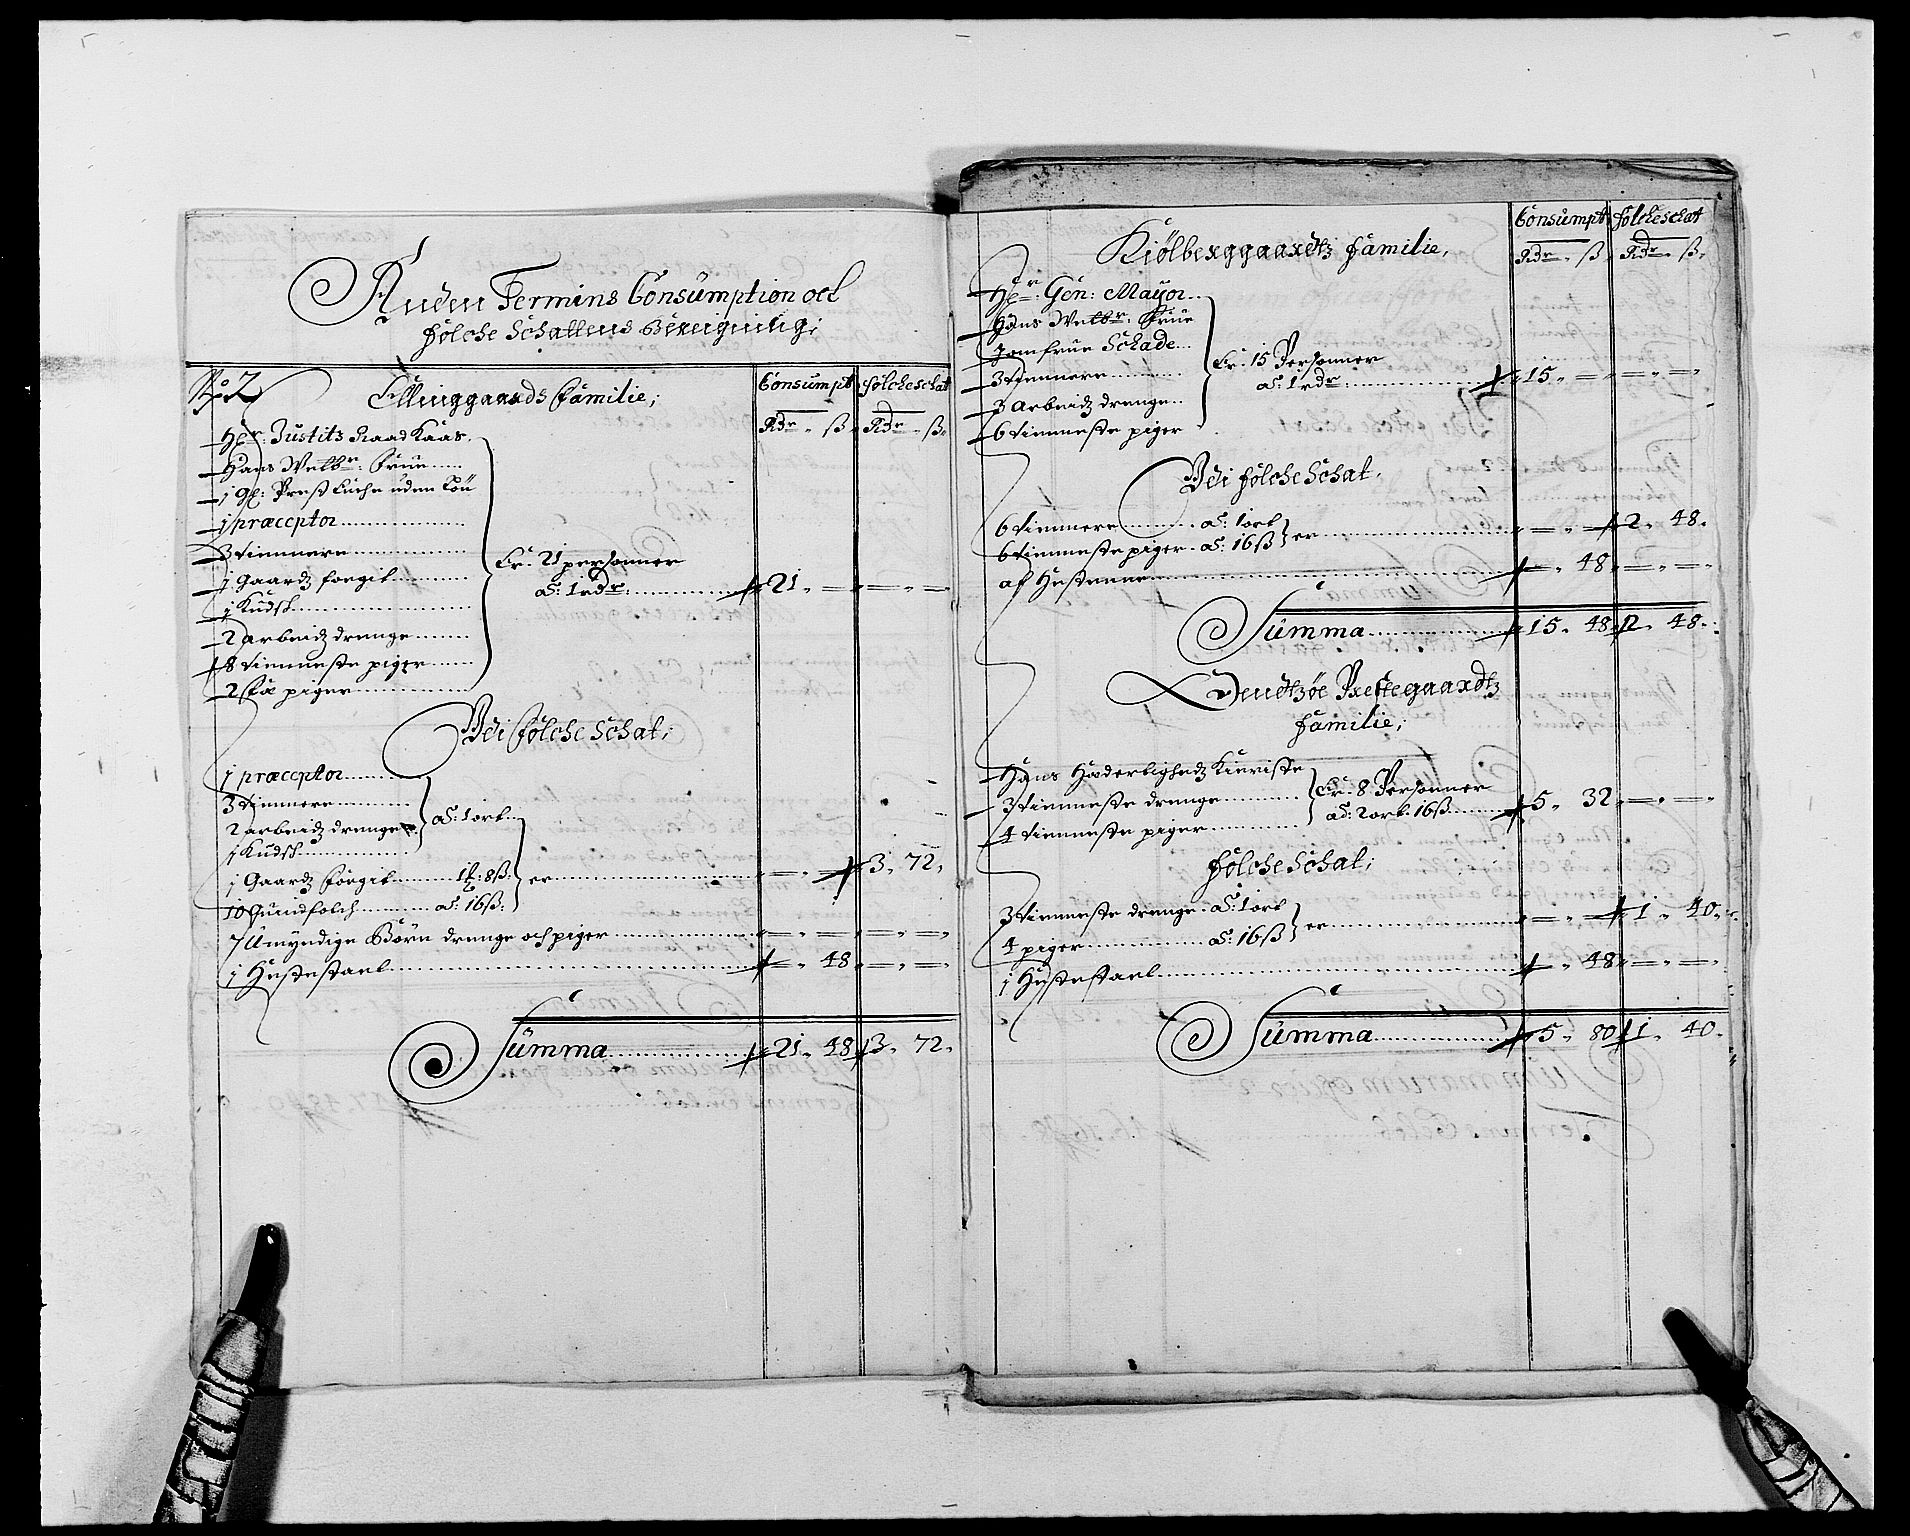 Anden Termins Consumption och
folche Schattens Bereigning;
No 2
Ellinggaards Familie;
Consumpt folcheschat
Rdr ß Rdr ß
Hr: Justitz Raad Kaas
Hans Welbr: Frue
1 præceptor
3 tiennere
1 Gaardz foegit
1 Kudsk
2 arbeidz drenge
8 tienneste piger
2 fæ piger
Er. 21 personner
a 1 rdr 21
Dei folche Schat;
1 præceptor
3 tiennere
2 arbeidz drenge
1 Kudsk
a: 1 ort
1 Gaardz foegit 8ß
10 Quindfolch a: 16ß
er 3. 72.
7 Umyndige Børn drenge och piger
1 Hestestael 48
Summa 21. 48 3. 72.
Kiølberggaardtz familie,
Consumpt folcheschat
Rdr ß Rdr ß
Hr: Gen: Mayor
Hans Welbr: Frue
Jomfrue Schade
3 tiennere
3 arbeidz drenge
6 tienneste piger
Er. 15 Personner
a 1 rdr 15
Dei folche Schat,
6 tiennere a: 1 ort
6 tienneste piger a: 16ß er 2. 48.
af Hestenne 48
Summa 15. 48 2. 48.
Præstegaardtz
familie;
Hans Hæderlighedz
3 tienneste drenge
4 tienneste piger
Er. 8 Personner
ad: 2 ort. 16ß 5. 32
folche Schat;
3 tienneste drenge a: 1 ort
4 piger a: 16ß er 1. 40
1 Hestestael 48
Summa 5. 80 1. 40.